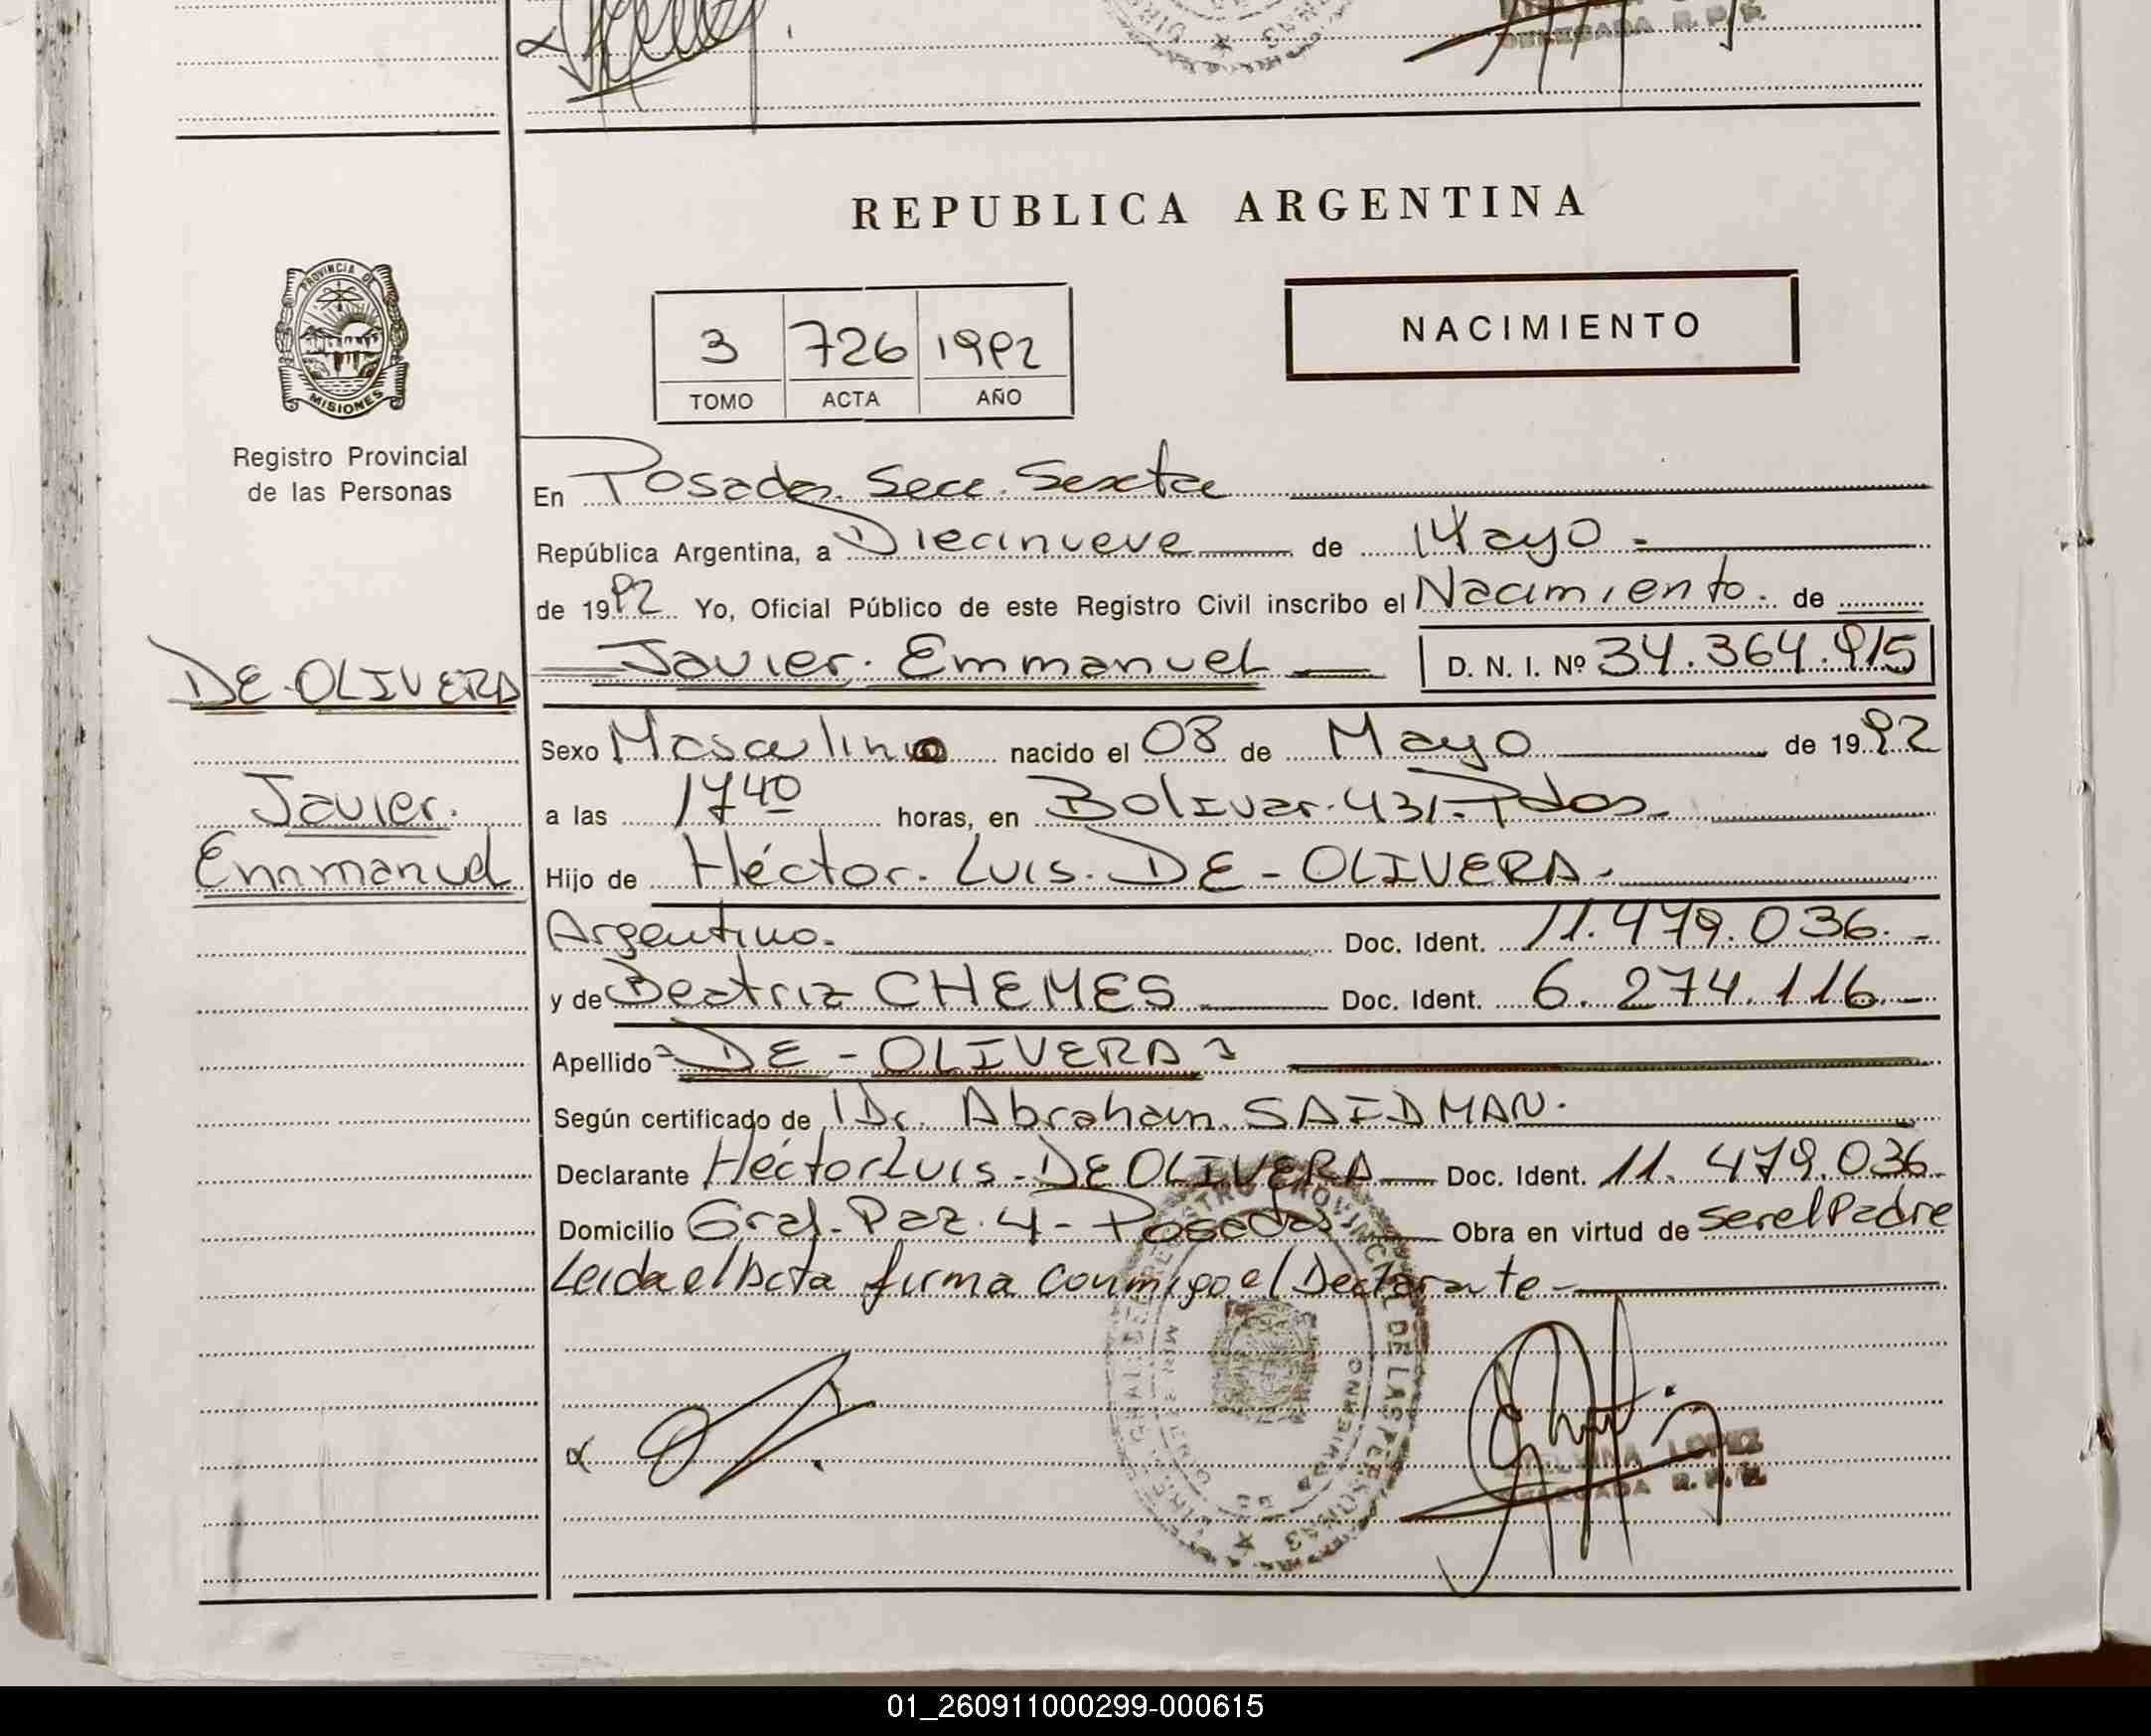 DELEGADA R. P. P.
REPUBLICA ARGENTINA
PROVINCIA DE
MISIONES
3 726 1992
TOMO ACTA AÑO
NACIMIENTO
Registro Provincial
de las Personas
En Posadas. Secc. Sexta
República Argentina, a Diecinueve de Mayo.-
de 1992 Yo, Oficial Público de este Registro Civil inscribo el Nacimiento. de
DE-OLIVERA
Javier. Emmanuel D. N. I. Nº 34.364.915
Sexo Masculino nacido el 08 de Mayo de 1992
Javier.
Emmanuel
a las 1740 horas, en Bolivar.431.Pdas.
Hijo de Héctor. Luis. DE-OLIVERA.
Argentino. Doc. Ident. 11.479.036.-
y de Beatriz CHEMES Doc. Ident. 6.274.116.-
Apellido =DE-OLIVERA=
Según certificado de Dr. Abraham. SAIDMAN.
Declarante Héctor Luis-DE OLIVERA Doc. Ident. 11.479.036-
Domicilio Gral-Paz.4-Posadas Obra en virtud de ser el Padre
Leida el Acta firma conmigo el Declarante-
REGISTRO PROVINCIAL DE LAS PERSONAS
LOPEZ
DELEGADA R. P. P.
01_260911000299-000615